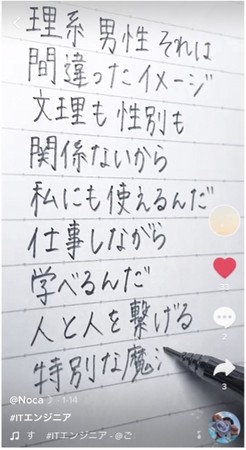 理系 男性 それは
間違ったイメージ
文理も 性別も
関係ないから
私にも使えるんだ
仕事しながら
学べるんだ
人と人を繋げる
特別な魔
11
2
3
@Noca♪ · 1-14
#ITエンジニア
♫ す #ITエンジニア - @ご